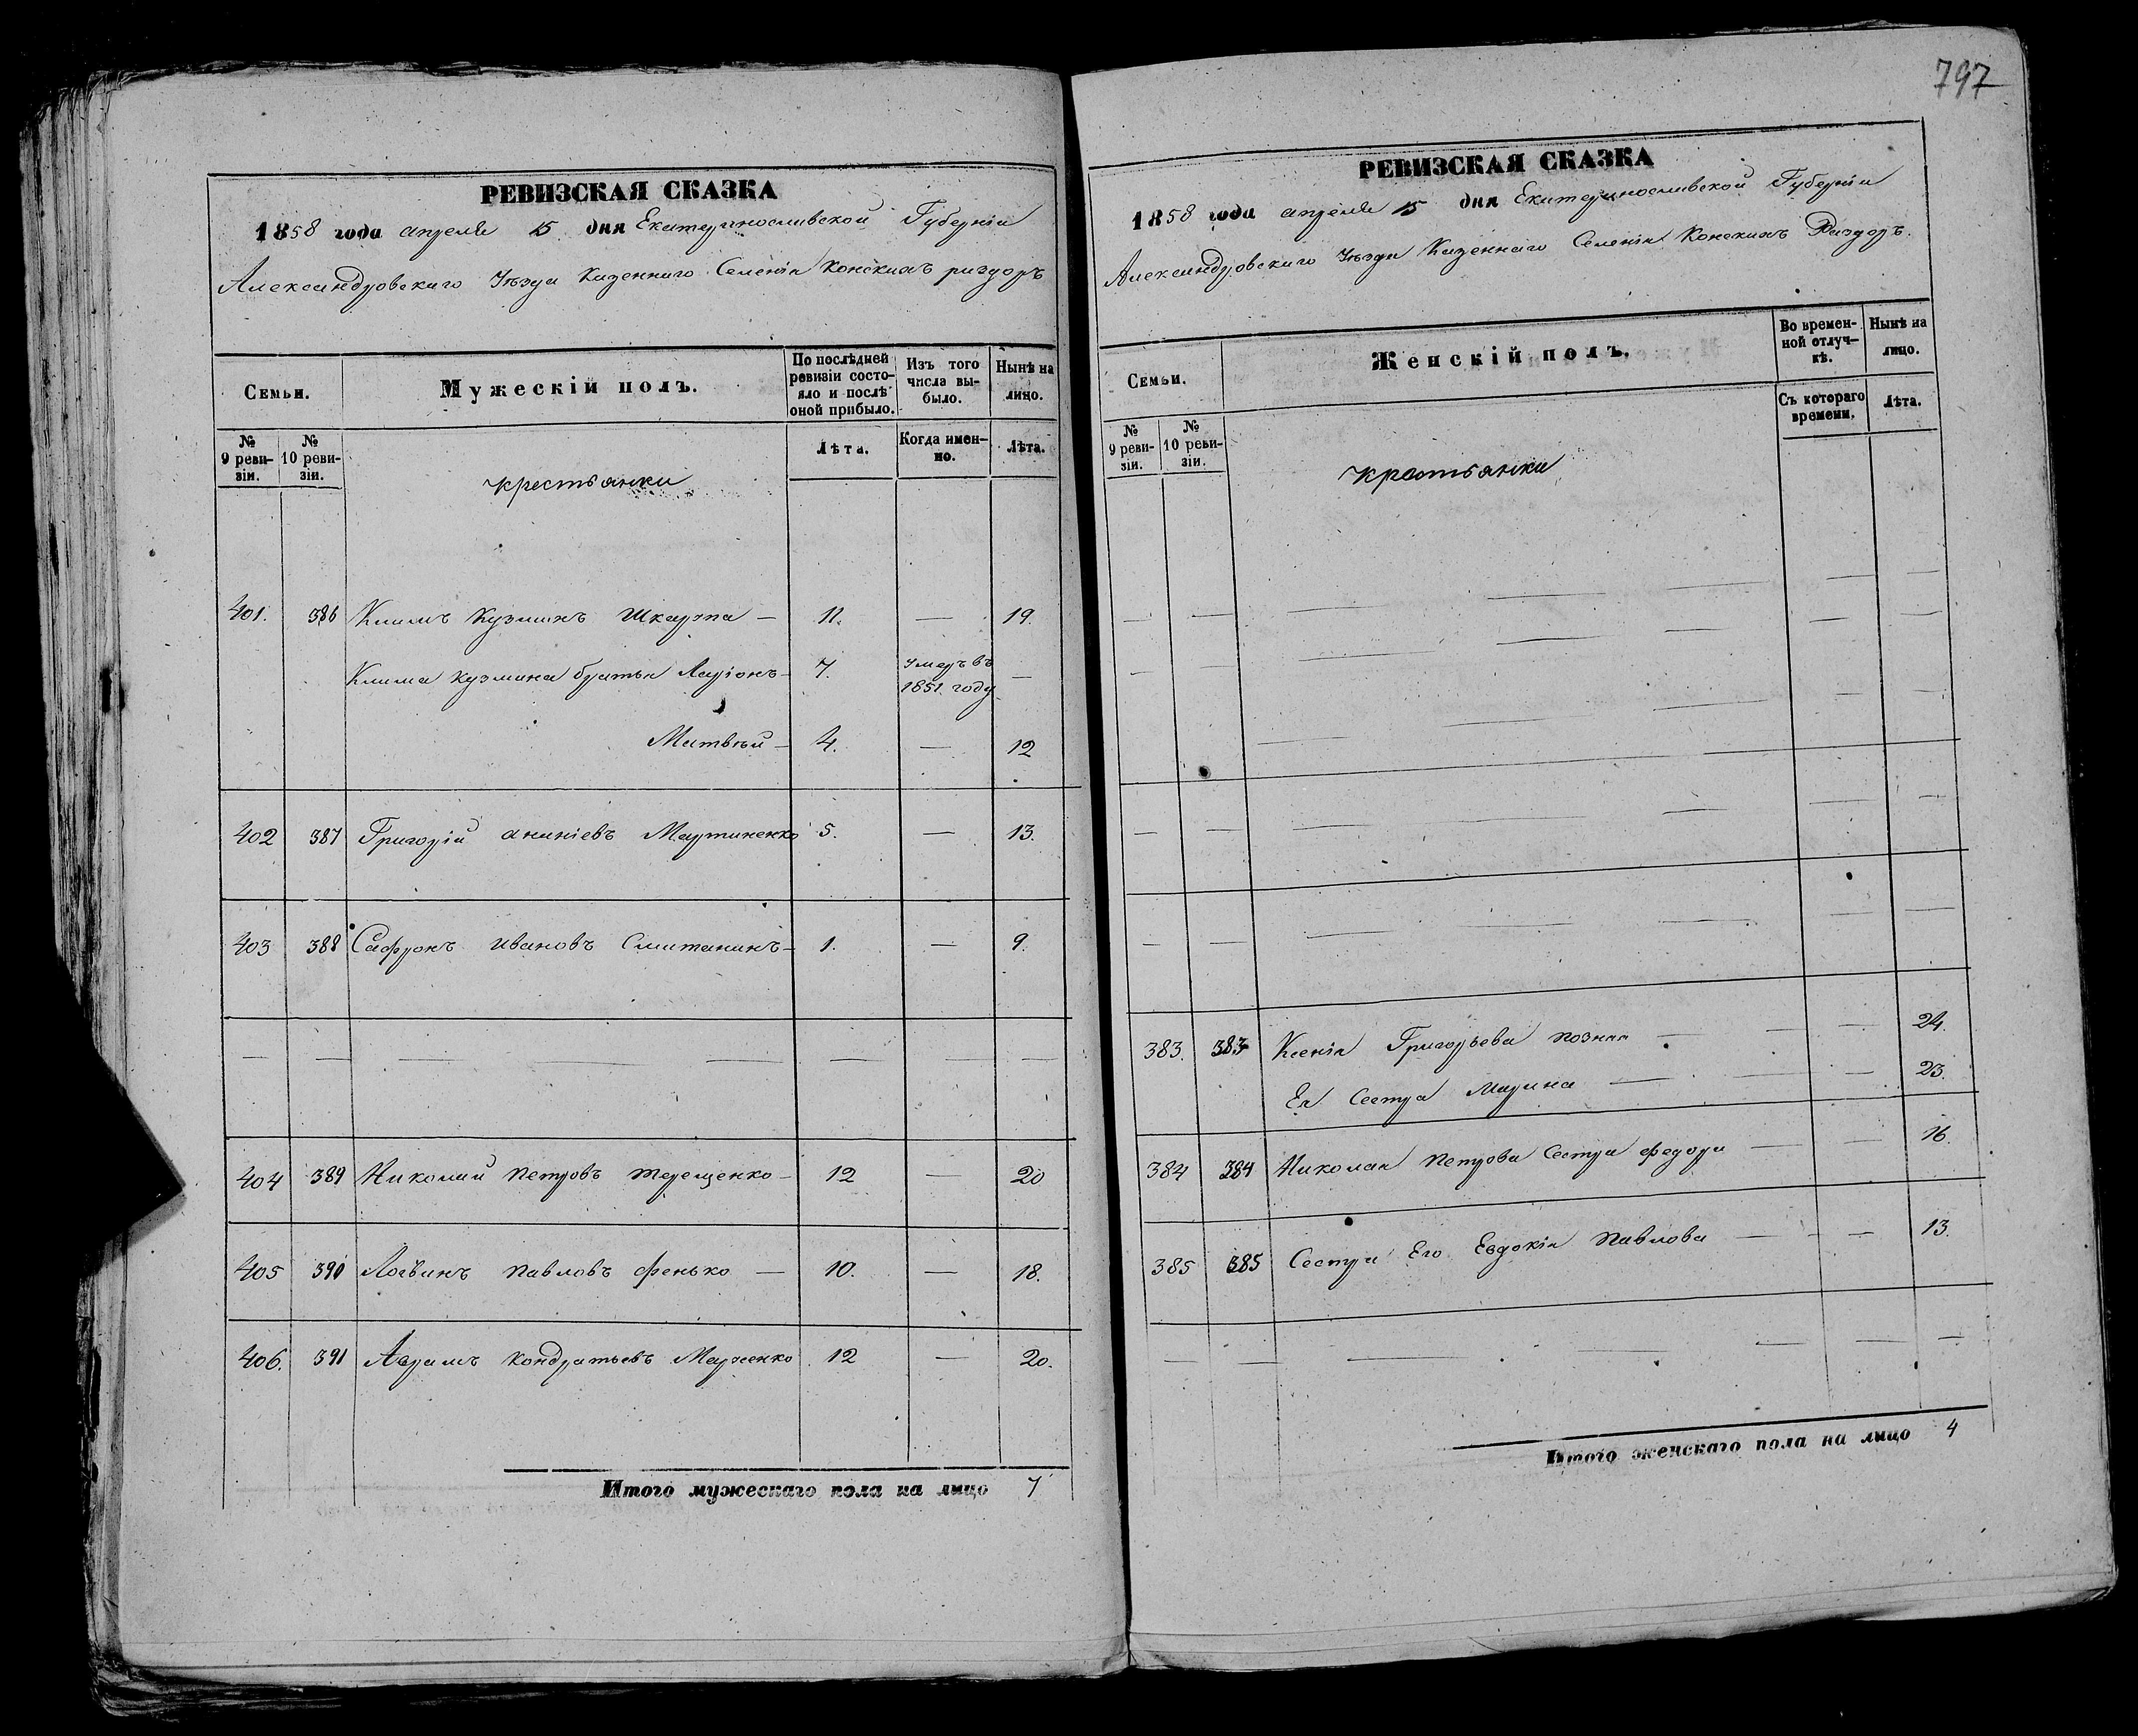 797
РЕВИЗСКАЯ СКАЗКА
1858 года апреля 15 дня Екатеринославской Губерніи
Александровскаго Уѣзда Казеннаго Селенія Конскихъ раздоръ
Семьи.
Мужескій полъ.
По послѣдней ревизіи состояло и послѣ оной прибыло.
Изъ того числа выбыло.
Нынѣ на лицо.
№ 9 ревизіи.
№ 10 ревизіи.
Лѣта.
Когда именно.
Лѣта.
крестьянки
401. 386 Климъ Кузминъ Шкарпа — 11. — 19.
Клима Кузмина братья Ларіонъ — 7. умеръ въ 1851. году —
Матвѣй — 4. — 12
402 387 Григорій ананіевъ Мартиненко 5. — 13.
403 388 Сафронъ ивановъ Смитанинъ — 1. — 9.
— — — — — — —
404 389 Николай Петровъ терещенко — 12 — 20
405 390 Логвинъ Павловъ фенько — 10. — 18.
406. 391 Аврамъ Кондратьевъ Марченко 12 — 20.
Итого мужескаго пола на лицо 7
РЕВИЗСКАЯ СКАЗКА
1858 года апреля 15 дня Екатеринославской Губерніи
Александровскаго Уѣзда Казеннаго Селенія Конскихъ Раздоръ.
Семьи.
Женскій полъ.
Во временной отлучкѣ.
Нынѣ на лицо.
№ 9 ревизіи.
№ 10 ревизіи.
Съ котораго времени.
Лѣта.
крестьянки
383. 383 Ксенія Григорьева позная — — 24.
Ея Сестра Марина — — 23.
384 384 Николая Петрова Сестра федора — — 16.
385 385 Сестра Его Евдокія Павлова — — 13.
Итого женскаго пола на лицо 4